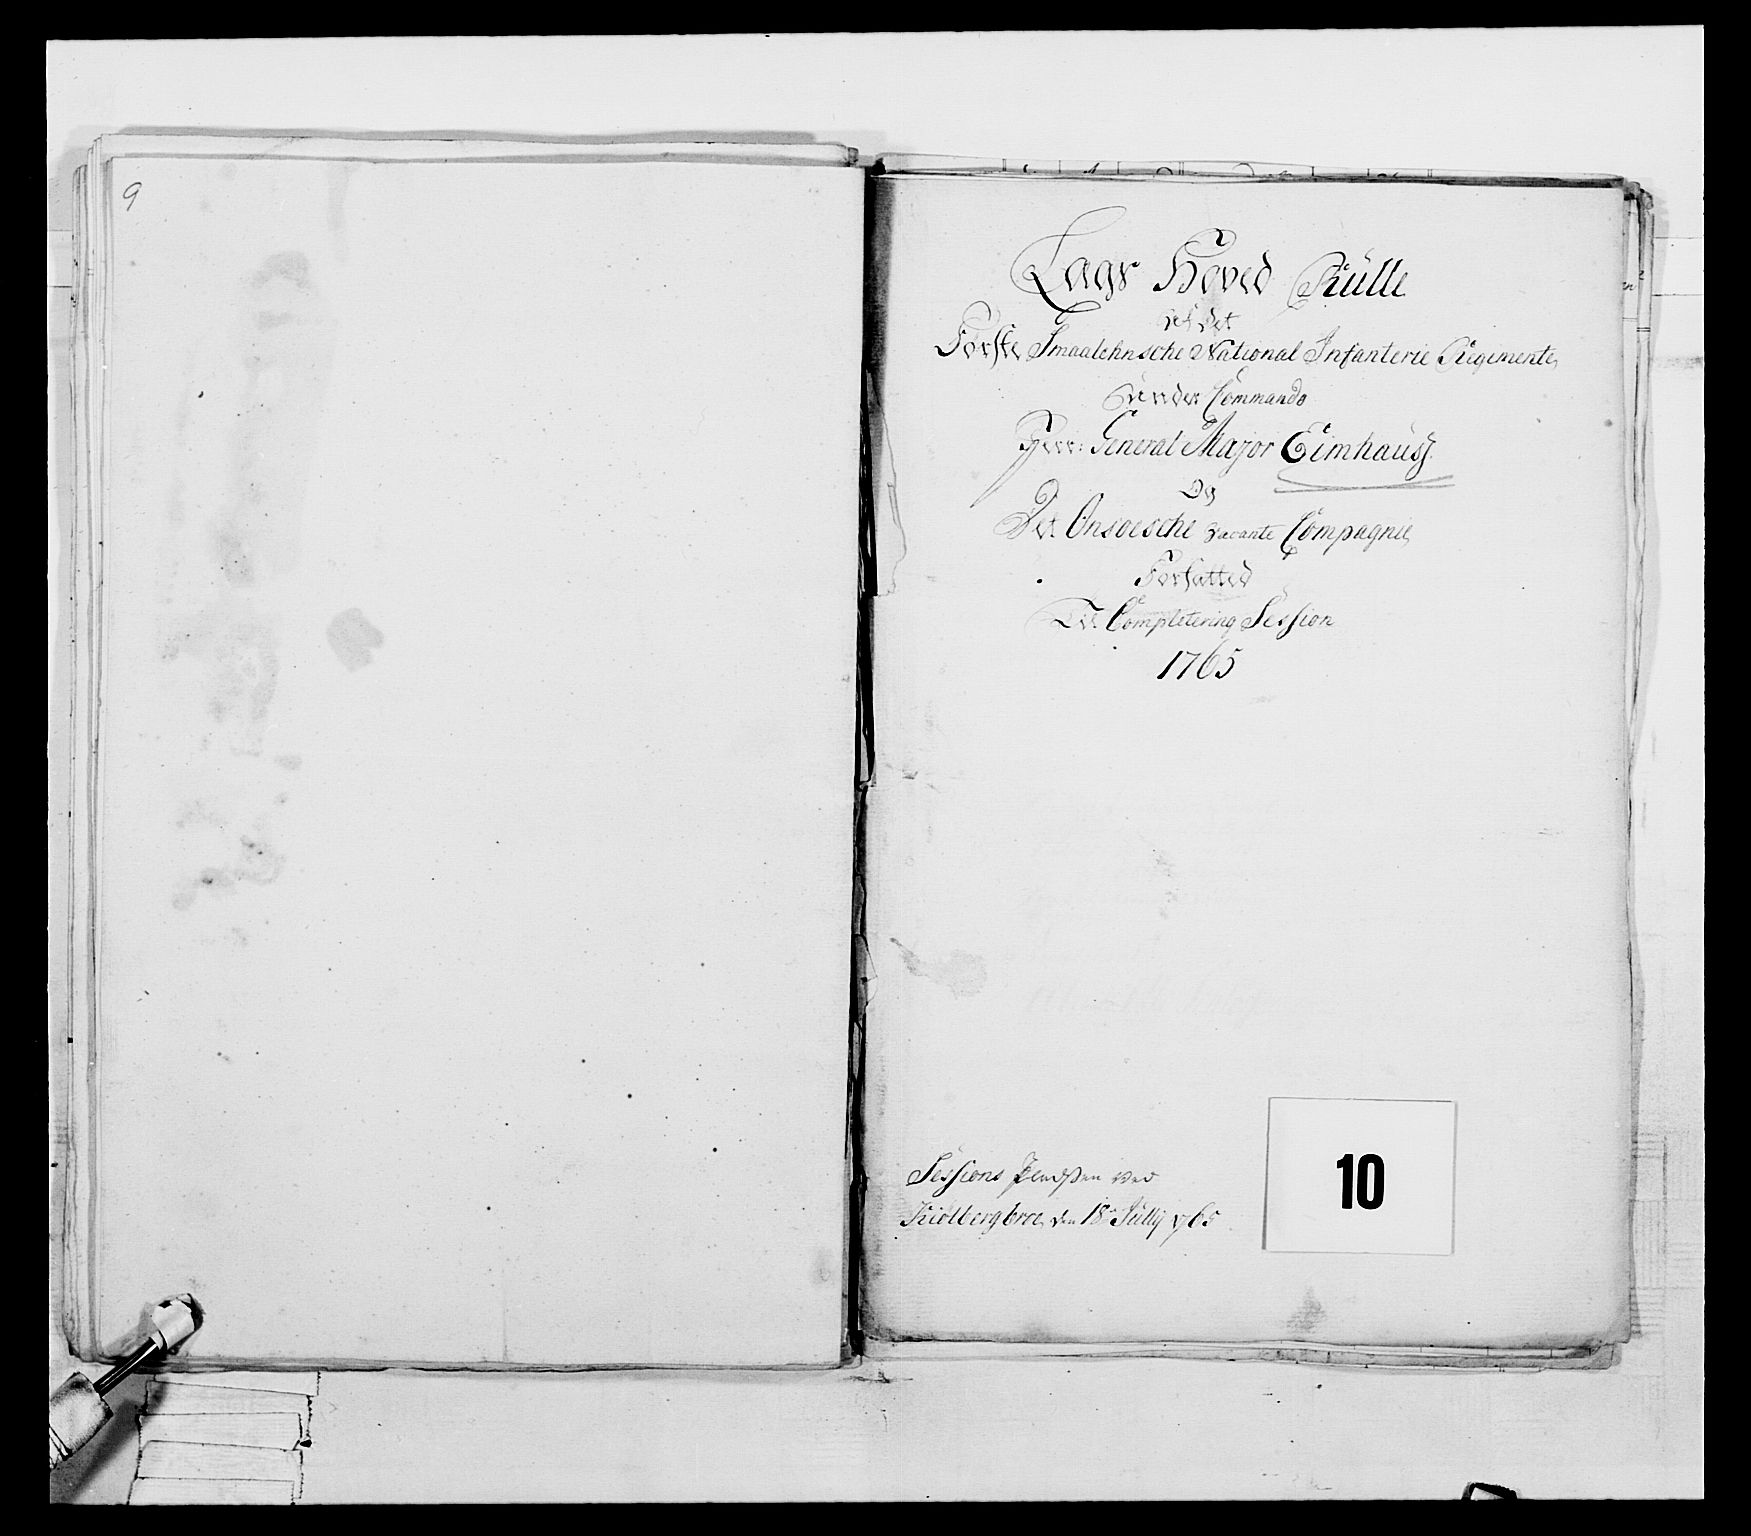 9
Lags Hoved Rülle
af det
Første Smaalehnsche National Infanterie Regimente
under Commando
Herr: General Major Eimhauss.
Og
Det Onsoesche vacante Compagnie
Forfatted
Til Completering Session
1765
Sessions ved
Kiölbergbroe den 18de Jullij 1765
10